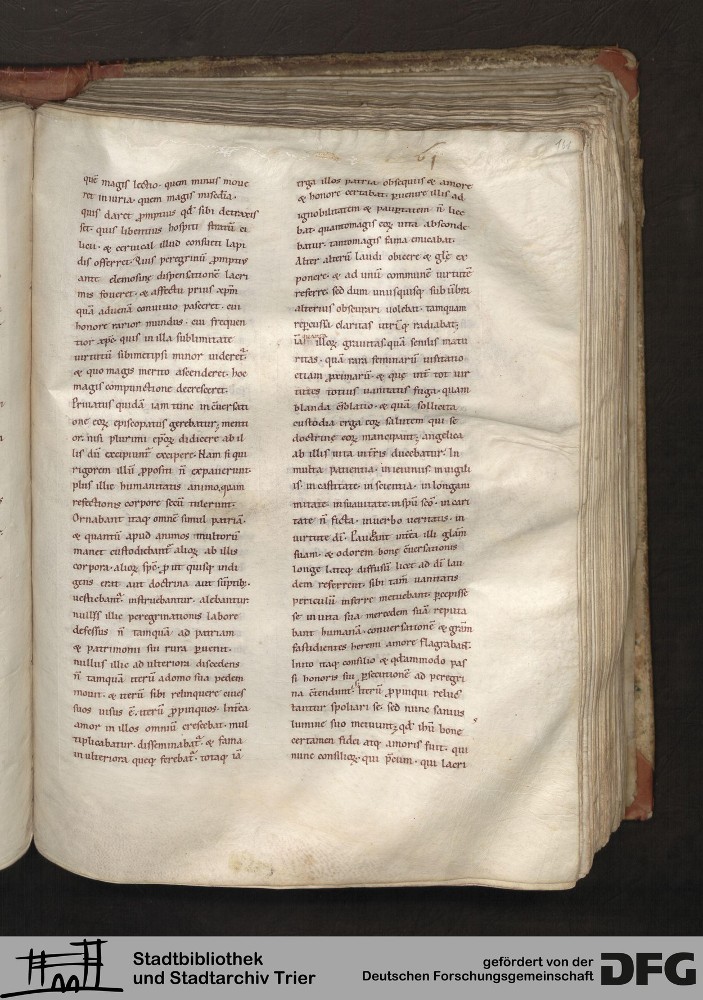 quē magis lectio. quem minus moue
ret iniuria. quem magis misedia.
quis daret ꝓmptius qđ sibi detraxis
set. quis libentius hospiti stratū et
lieu. & ceruical illud consuti lapi
dis offerret. Quis peregrinū ꝓmptis
ante elemosinę dispensationē lacri
mis foueret. & affectu prius xp̄m
quā aduenā conuiuio pasceret. cui
honore rarior mundus. cui frequen
tior xp̄c. quis in illa sublimitate
uirtutū sibimetipsi minor uideret.
& quo magis merito ascenderet. hoc
magis compunctione decresceret.
Priuatus quidā iam tunc in cūersati
one eoꝝ episcopatus gerebatur; menti
or. nisi plurimi ep̄oꝝ didicere ab il
lis dū excipiunt excipere. Nam si qui
rigorem illū ꝓpositi n̄ expauerunt.
plus illic humanitatis animo, quam
refectionis corpore secū tulerunt.
Ornabant itaq; omnē simul patriā.
& quantū apud animos multorū
manet custodiebant alioꝝ ab illis
corpora. alioꝝ spēs. ꝓut quisq; indi
gens erat aut doctrina aut sūptib;.
uestiebant. instruebantur. alebantur.
nullus illic peregrinationis labore
defessus n̄ tamquā ad patriam
& patrimonii sui rura ꝑuenit.
nullus illic ad ulteriora discedens
n̄ tamquā iterū a domo sua pedem
mouit. & iterū sibi relinquere ciues
suos uisus ē. iterū ꝓpinquos. Int̄ea
amor in illos omniū crescebat. mul
tiplicabatur. disseminabat̄. & fama
in ulteriora quęq; ferebat̄. totaq; iā
erga illos patria. obsequiis & amore
& honore certabat. ꝑuenire illis ad
ignobilitatem & paupertatem n̄ lice
bat. quantomagis eoꝝ uita abscondе
batur. tantomagis fama emicabat.
Alter alterū laudi obicere & glę ex
ponere. & ad unū communē uirtutē
referre. sed dum unusquisq; sub ūbra
alterius obscurari uolebat. tamquam
repercussa claritas utriq; radiabat;
iā illoꝝ grauitas quā senilis matu
ritas. quā rara feminarū uisitatio
etiam ꝓximarū. & quę inter tot uir
tutes totius uanitatis fuga. quam
blanda exhibitio & quā sollicita
custodia erga eoꝝ salutem qui se
doctrinę eoꝝ mancipant; angelica
ab illis uita in t̄ris ducebatur. In
multa patientia. in ieiuniis in uigili
is. in castitate. in scientia. in longani
mitate. in suauitate. in sp̄u sc̄o. in cari
tate n̄ ficta. in uerbo ueritatis. in
uirtute dī. Laudent intēa illi glām
suam. & odorem bonę cūersationis
longe lateq; diffusū. licet ad dī lau
dem referrent. sibi tam̄ uanitatis
periculū inferre metuebant. ꝑcepisse
se in uita sua mercedem suā reputa
bant humanā. conuersationē & grām
fastidientes heremi amore flagrabant.
Inito itaq; consilio & qđammodo pas
si honoris sui ꝑsecutionē ad peregri
na cōtendunt. Iterū ꝓpinqui reluc
tantur spoliari se. sed nunc sanius
lumine suo metuunt; qđ ibi bone
certamen fidei atq; amoris fuit. qui
nunc consiliꝝ. qui p̄cum. qui lacri
Stadtbibliothek
und Stadtarchiv Trier
gefördert von der
Deutschen Forschungsgemeinschaft
DFG